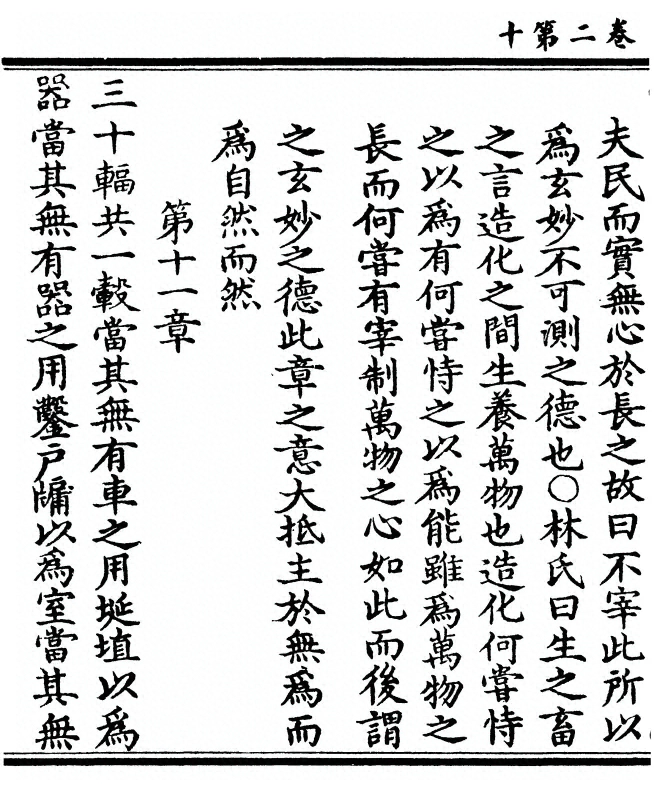 卷二第十
夫民而實無心於長之故曰不宰此所以
爲玄妙不可測之德也○林氏曰生之畜
之言造化之間生養萬物也造化何嘗恃
之以爲有何嘗恃之以爲能雖爲萬物之
長而何嘗有宰制萬物之心如此而後謂
之玄妙之德此章之意大抵主於無爲而
爲自然而然
第十一章
三十輻共一轂當其無有車之用埏埴以爲
器當其無有器之用鑿戸牗以爲室當其無